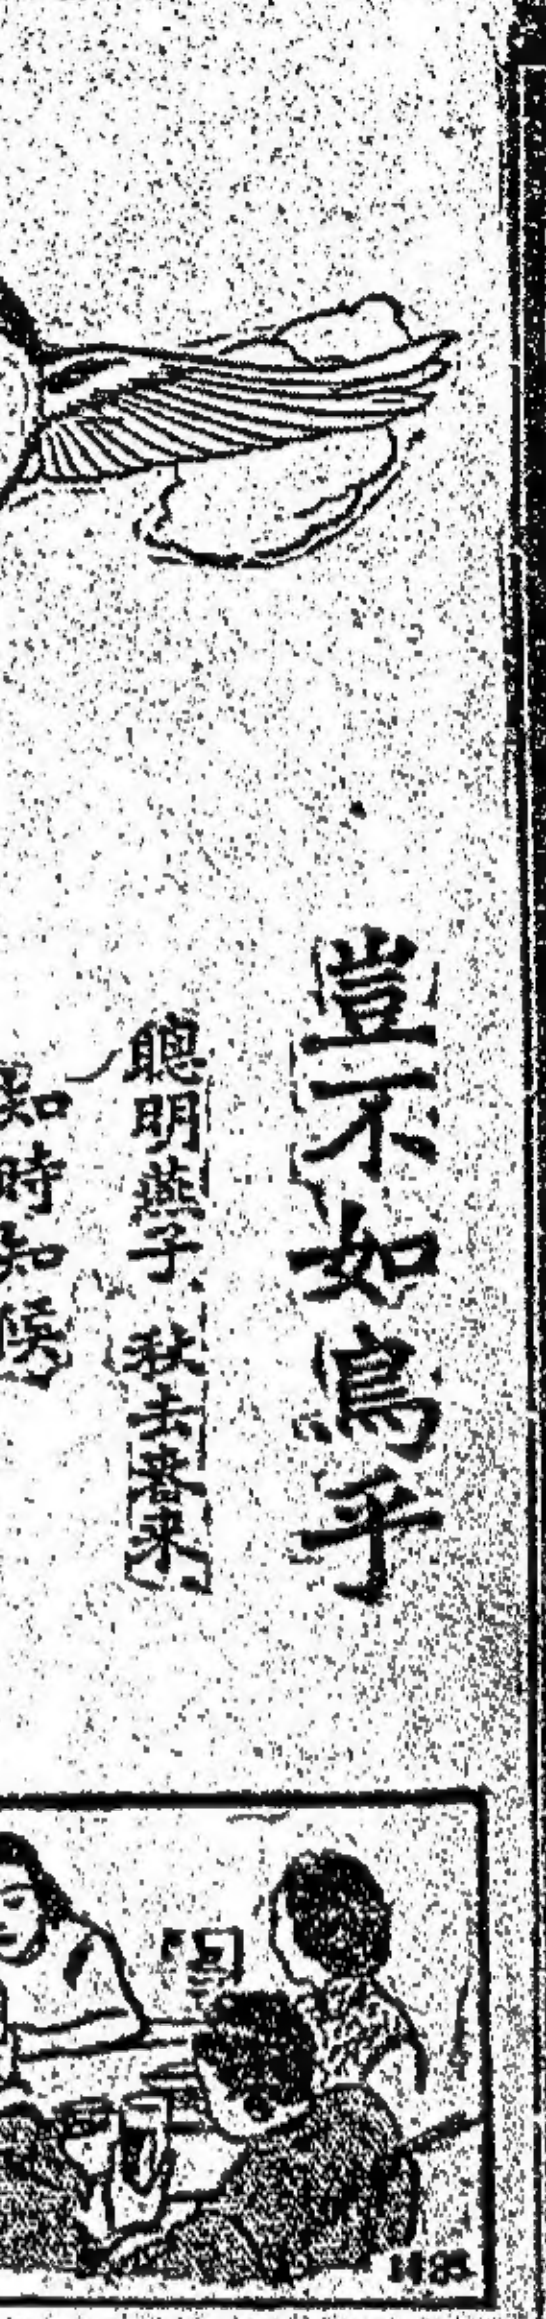 豈不如鳥乎
聰明燕子 秋去春來
知時知候